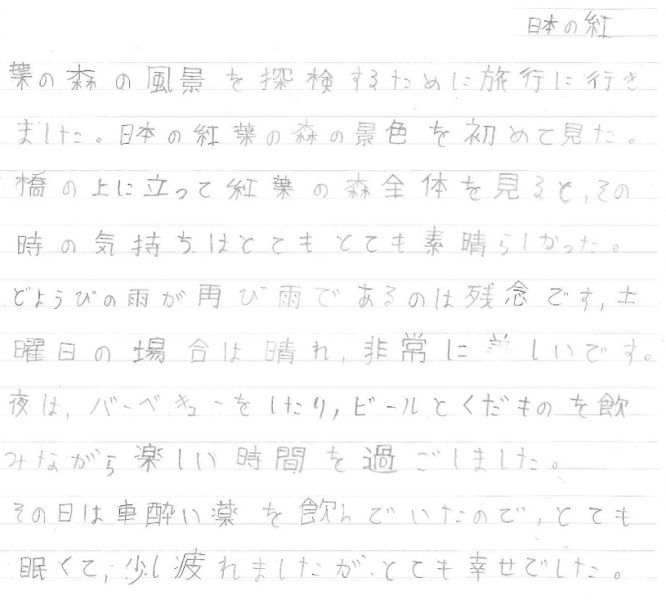 日本の紅
葉の森の風景を探検するために旅行に行き
ました。日本の紅葉の森の景色を初めて見た。
橋の上に立って紅葉の森全体を見ると,その
時の気持ちはとてもとても素晴らしかった。
どようびの雨が再び雨であるのは残念です,土
曜日の場合は晴れ,非常に美しいです。
夜は,バーベキューをしたり,ビールとくだものを飲
みながら楽しい時間を過ごしました。
その日は車酔い薬を飲んでいたので,とても
眠くて,少し疲れましたが,とても幸せでした。